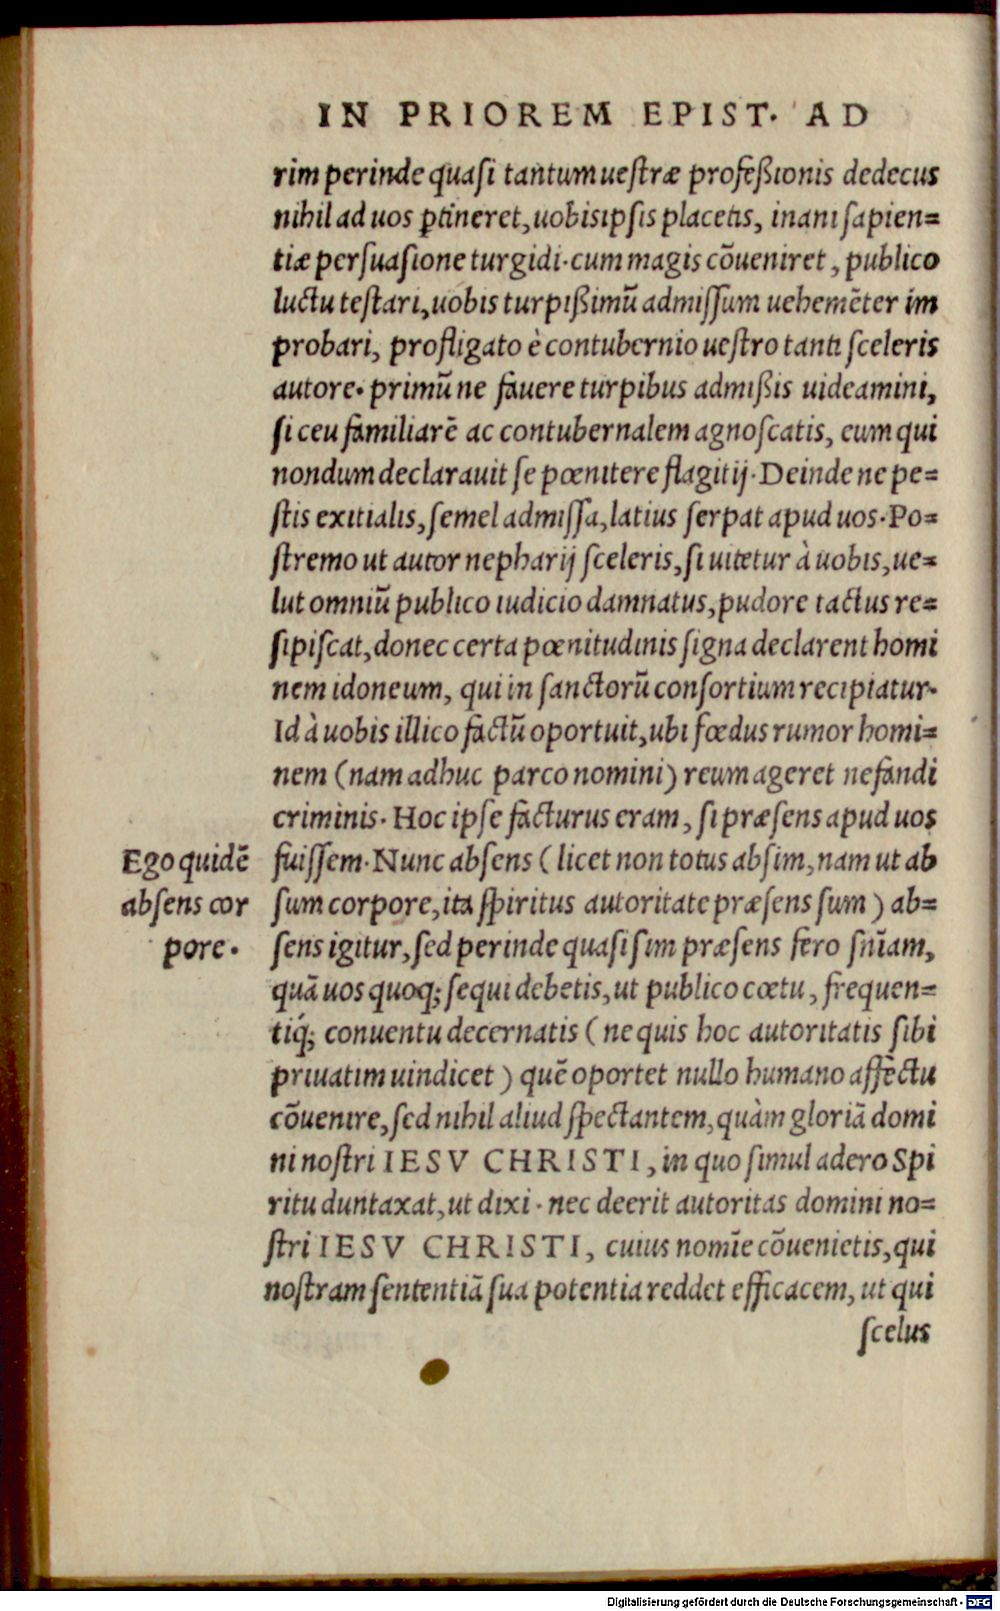 IN PRIOREM EPIST. AD
rim perinde quasi tantum uestræ profeßionis dedecus
nihil ad uos ꝑtineret, uobisipsis placetis, inani sapien=
tiæ persuasione turgidi. cum magis cõueniret, publico
luctu testari, uobis turpißimũ admissum uehemẽter im
probari, profligato è contubernio uestro tanti sceleris
autore. primũ ne fauere turpibus admißis uideamini,
si ceu familiarẽ ac contubernalem agnoscatis, eum qui
nondum declarauit se pœnitere flagitij. Deinde ne pe=
stis exitialis, semel admissa, latius serpat apud uos. Po=
stremo ut autor nepharij sceleris, si uitetur à uobis, ue=
lut omniũ publico iudicio damnatus, pudore tactus re=
sipiscat, donec certa pœnitudinis signa declarent homi
nem idoneum, qui in sanctorũ consortium recipiatur.
Id à uobis illico factũ oportuit, ubi fœdus rumor homi=
nem (nam adhuc parco nomini) reum ageret nefandi
criminis. Hoc ipse facturus eram, si præsens apud uos
Ego quidẽ
absens cor
pore.
fuissem. Nunc absens (licet non totus absim, nam ut ab
sum corpore, ita spiritus autoritate præsens sum) ab=
sens igitur, sed perinde quasi sim præsens fero sñiam,
quã uos quoq; sequi debetis, ut publico cœtu, frequen=
tiq́; conuentu decernatis (ne quis hoc autoritatis sibi
priuatim uindicet) quẽ oportet nullo humano affectu
cõuenire, sed nihil aliud spectantem, quàm gloriã domi
ni nostri IESV CHRISTI, in quo simul adero Spi
ritu duntaxat, ut dixi. nec deerit autoritas domini no=
stri IESV CHRISTI, cuius nomĩe cõuenietis, qui
nostram sententiã sua potentia reddet efficacem, ut qui
scelus
Digitalisierung gefördert durch die Deutsche Forschungsgemeinschaft - DFG